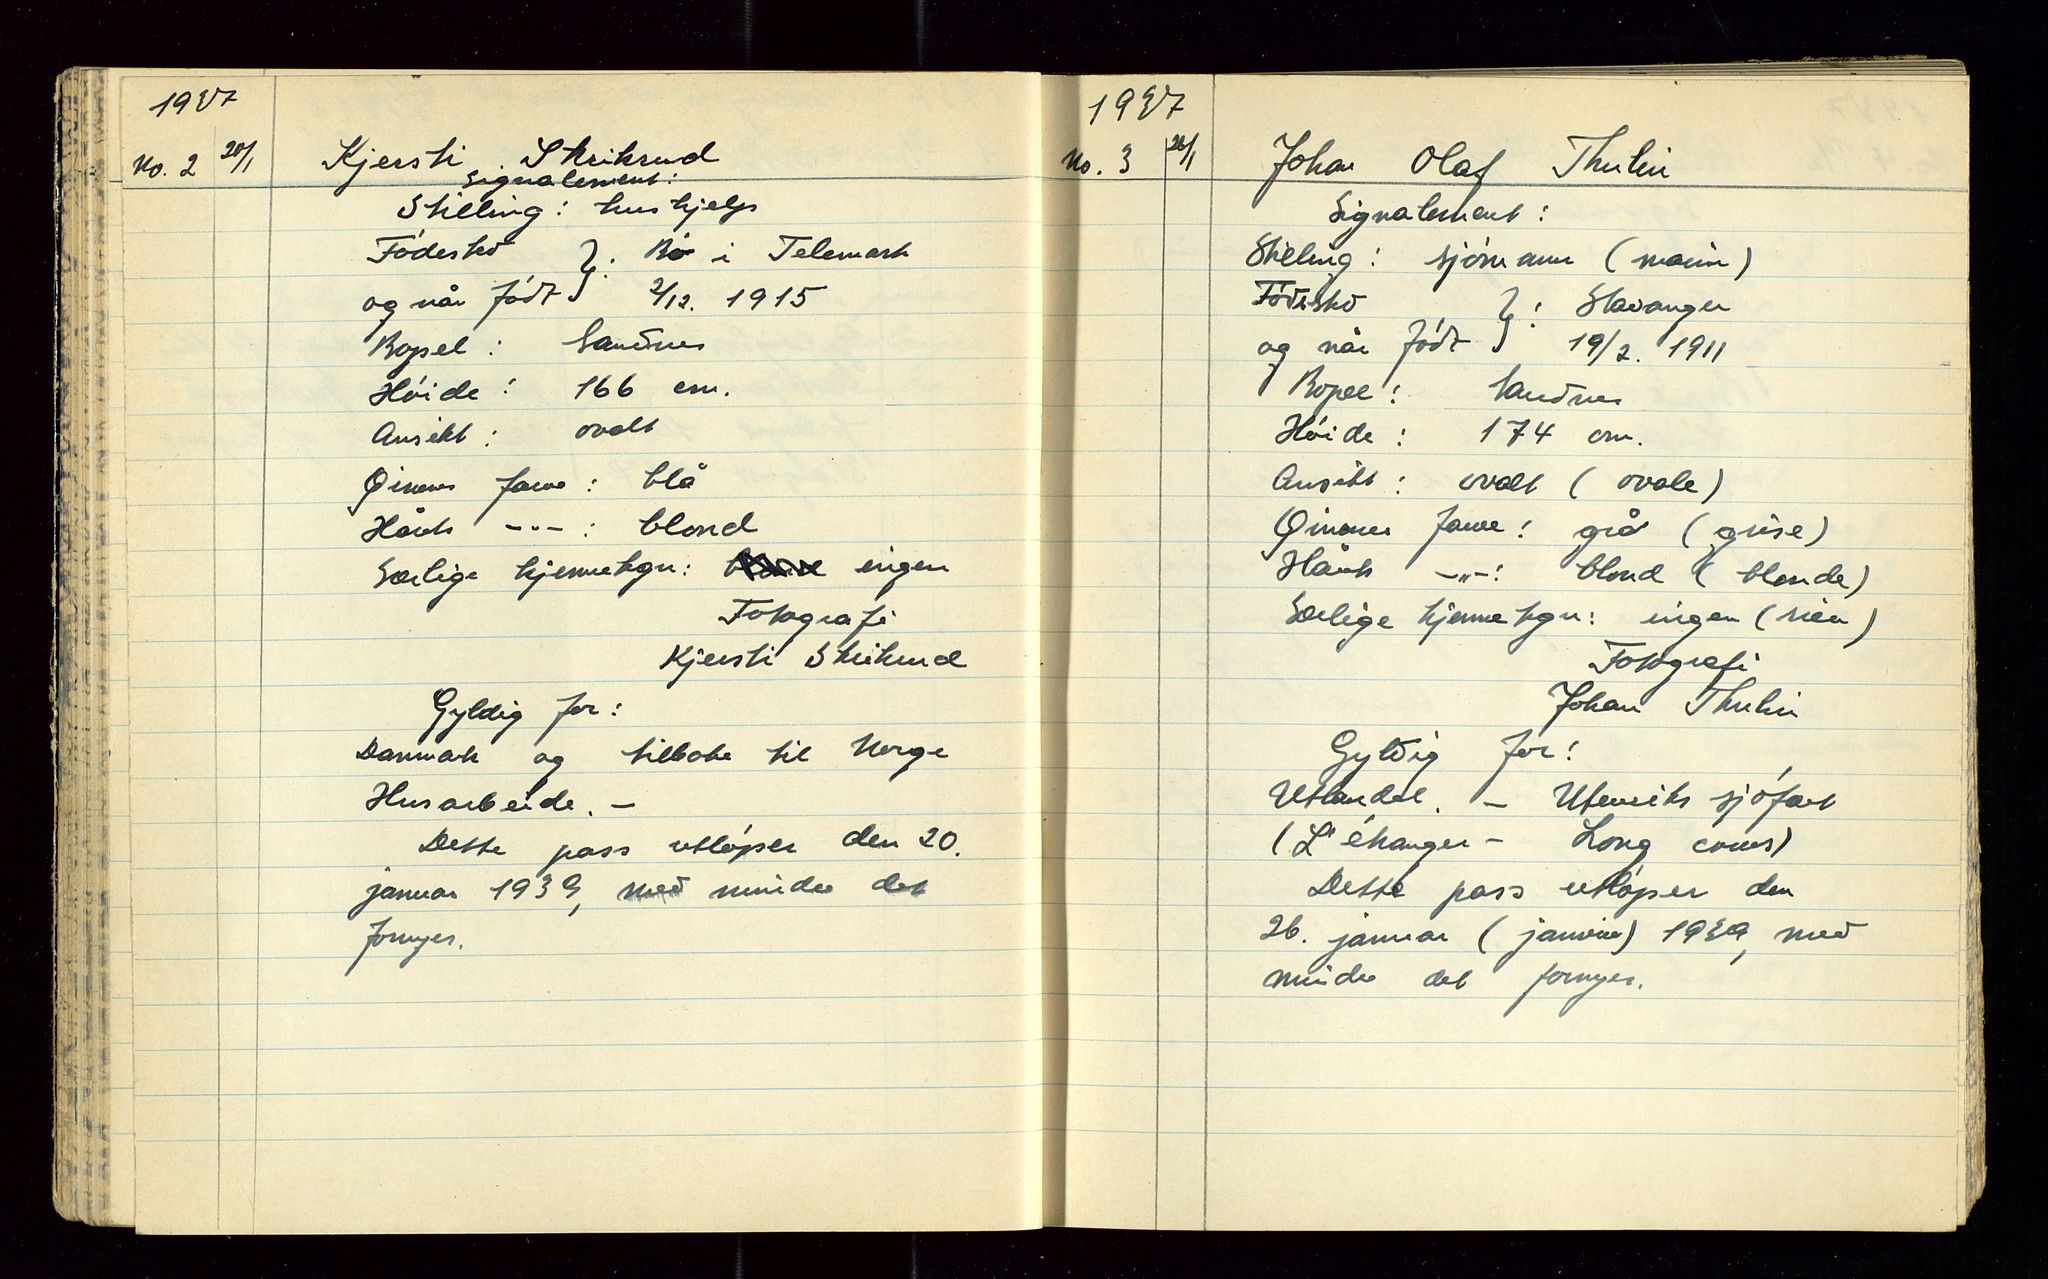 1937
No. 2 20/1 Kjersti Skrikrud
Signalement:
Stilling: hushjelp
Fødested
og når født }: Bø i Telemark
2/12. 1915
Bopel: Sandnes
Høide: 166 cm.
Ansikt: ovalt
Øinenes farve: blå
Hårets -"-: blond
Særlige kjennetegn: ingen
Fotografi
Kjersti Skrikrud
Gyldig for:
Danmark og tilbake til Norge
Husarbeide. -
Dette pass utløper den 20.
januar 1939, med mindre det
fornyes.
1937
No. 3 26/1 Johan Olaf Thulin
Signalement:
Stilling: sjømann (marin)
Fødested
og når født }: Stavanger
19/2. 1911
Bopel: Sandnes
Høide: 174 cm.
Ansikt: ovalt (ovale)
Øinenes farve: grå (grise)
Hårets -"-: blond (blonde)
Særlige kjennetegn: ingen (rien)
Fotografi
Johan Thulin
Gyldig for:
Utlandet. - Utenriks sjøfart
(L'étranger - Long cours)
Dette pass utløper den
26. januar (janvier) 1939, med
mindre det fornyes.